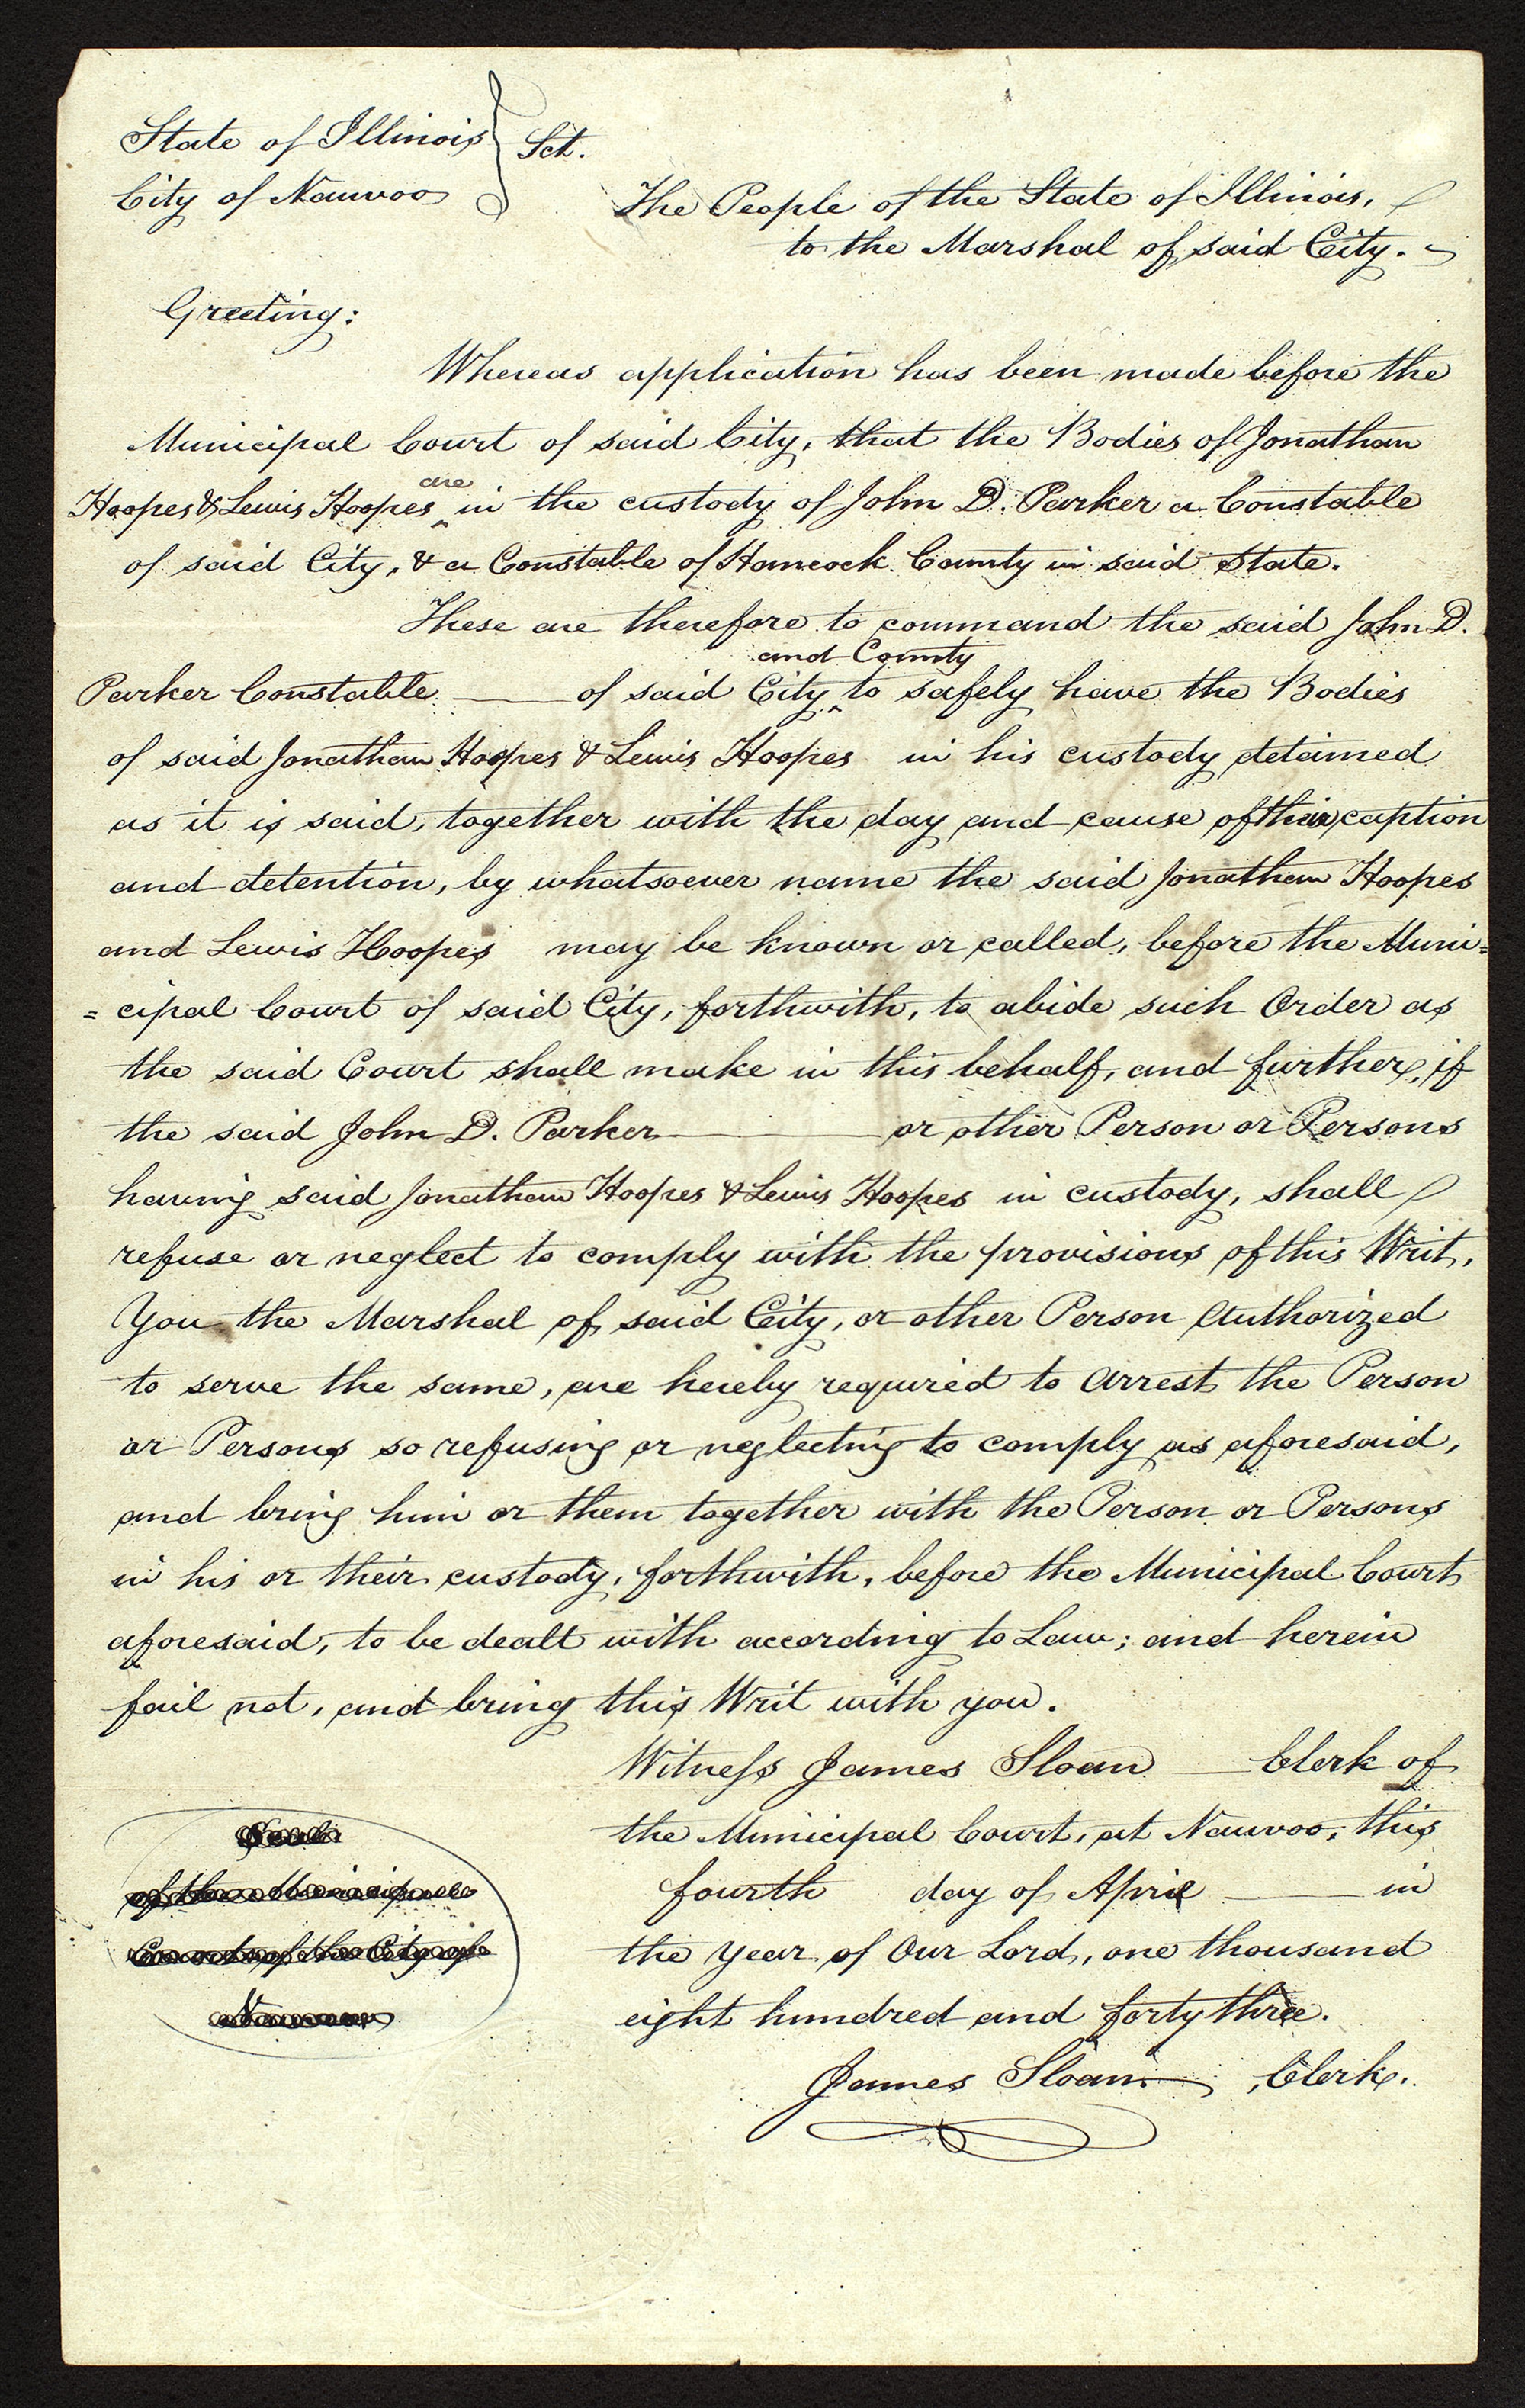 State of Illinois } Sct.
City of Nauvoo
The People of the State of Illinois,
to the Marshal of said City.
Greeting:
Whereas application has been made before the
Municipal Court of said City, that the Bodies of Jonathan
are
Hoopes & Lewis Hoopes ^ in the custody of John D. Parker a Constable
of said City, & a Constable of Hancock County in said State.
These are therefore to command the said John D.
and County
Parker Constable —— of said City ^ to safely have the Bodies
of said Jonathan Hoopes & Lewis Hoopes in his custody detained
as it is said, together with the day and cause of their caption
and detention, by whatsoever name the said Jonathan Hoopes
and Lewis Hoopes may be known or called, before the Muni=
=cipal Court of said City, forthwith, to abide such Order as
the said Court shall make in this behalf, and further, if
the said John D. Parker —— or other Person or Persons
having said Jonathan Hoopes & Lewis Hoopes in custody, shall
refuse or neglect to comply with the provisions of this Writ,
You the Marshal of said City, or other Person Authorized
to serve the same, are hereby required to Arrest the Person
or Persons so refusing or neglecting to comply as aforesaid,
and bring him or them together with the Person or Persons
in his or their custody, forthwith, before the Municipal Court
aforesaid, to be dealt with according to Law; and herein
fail not, and bring this Writ with you.
Witness James Sloan —— Clerk of
the Municipal Court, at Nauvoo, this
fourth day of April —— in
the Year of Our Lord, one thousand
eight hundred and forty three.
James Sloan, Clerk.
Seal
of the Municipal
Court of the City of
Nauvoo